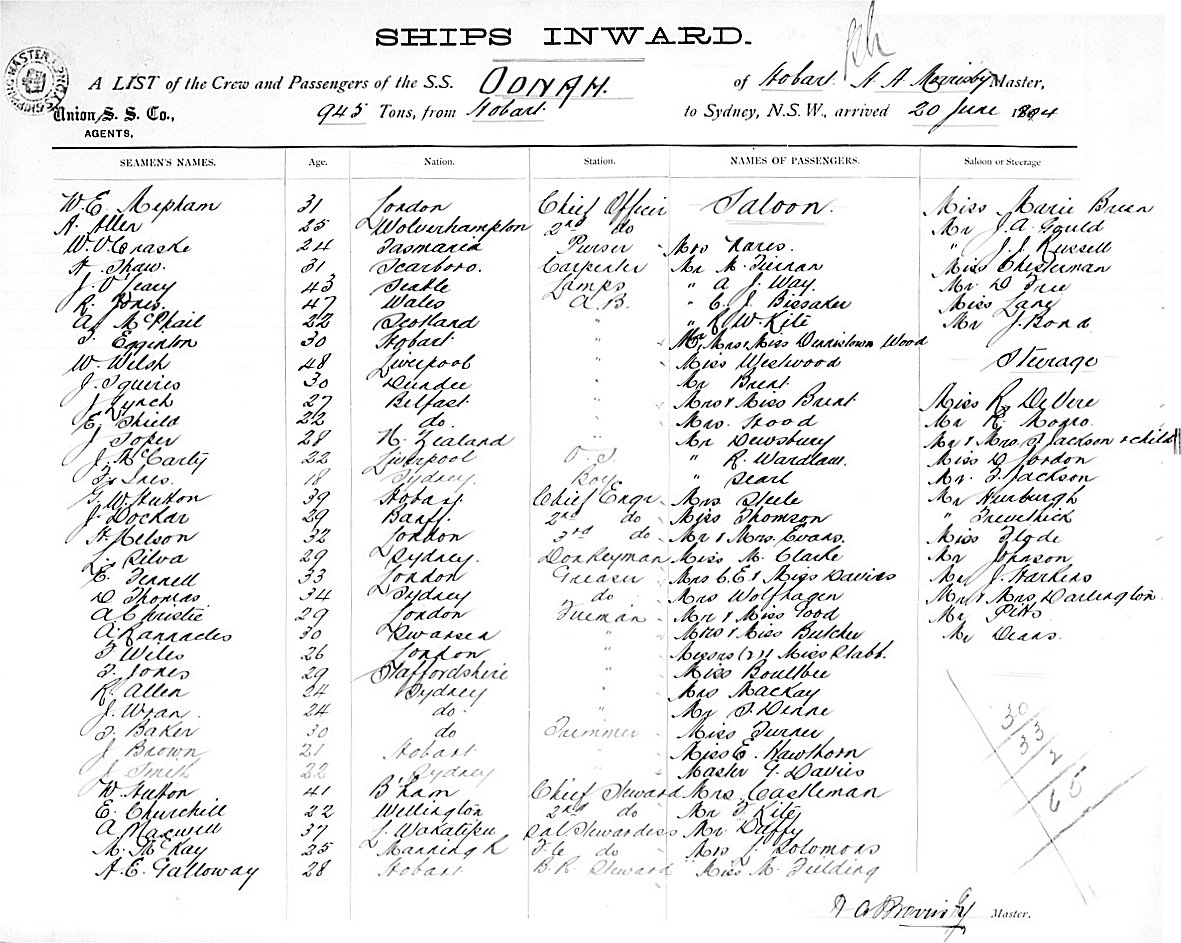 SHIPS INWARD.
A LIST of the Crew and Passengers of the S.S. OONAH. of Hobart. H A Morrisby Master,
Union S. S. Co., 945 Tons, from Hobart. to Sydney, N.S.W., arrived 20 June 1894
AGENTS,
SEAMEN'S NAMES. Age. Nation. Station. NAMES OF PASSENGERS. Saloon or Steerage
W. E. Mepham 31 London Chief Officer Saloon. Miss Marie Brean
A. Allen 25 Wolverhampton 2nd do Mr J. A. Gould
W. V. Craske 24 Tasmania Purser Mrs Nares. " J. J. Russell
H. Shaw. 31 Scarboro. Carpenter Mr M. Tiernan Miss Chesterman
J. O'Leary 43 Lamps " A J. Way. Mr D Free
R. Jones. 47 Wales A.B. " C. J. Bissaker Miss Lang
A. McPhail 22 Scotland " " R W. Kite Mr J. Bond
Egginton 30 Hobart " Mr, Mrs & Miss Dennistown Wood
W. Welsh 48 Liverpool " Miss Westwood Steerage
J. Squires 30 Dundee " Mr Brent.
J Lynch 27 Belfast. " Mrs & Miss Brent Miss R. DeVere
E. Shield 22 do. " Mrs. Hood Mr R. Monro.
J Soper 28 N. Zealand " Mr Dewsbury Mr & Mrs. Jackson & child
J. McCarty 22 Liverpool O.S " R. Wardlaw. Miss D Jordon
18 Sydney. Boy " Searl Mr. Jackson
G. W. Hutton 39 Hobart Chief Engr. Mrs. Steele Mr Huxburgh
J. Dockar 29 Banff. 2nd do Miss Thomson " Trevethick
H. Nelson 32 London 3rd do Mr & Mrs. Evans. Miss Flode
L. Silva 29 Sydney. Donkeyman Miss M. Clarke Mr Johnson
E. Fennell 33 London Greaser Mrs C. E & Miss Davies Mr J. Harkins
D Thomas 34 Sydney do Mrs Wolfhagen Mr & Mrs. Darlington
A Christie 29 London Fireman Mr & Miss Food Mr Pitts
A. Rannacles 30 Swansea " Mrs & Miss Butcher Mr Deans.
Wiles 26 London " Messrs (2) & Miss Stabb.
Jones 29 Staffordshire " Miss Boultbee
R. Allen 24 Sydney " Mrs MacKay
J. Wran 24 do " Mr Denne
Baker 30 do Trimmer Miss Turner
J Brown 21 Hobart " Miss E. Hawthorn
J Smith 22 Sydney " Master G. Davies
W. Hutton 41 B'ham Chief Steward Mrs. Castleman
E. Churchill 22 Wellington 2nd do Mr Kite
A Maxwell 37 L. Wakatipu Sal Stewardess Mr. Duffy
M. McKay 25 F.C. do Mrs L. Solomons
A. E. Galloway 28 Hobart B.R. Steward Miss M. Fielding
30
33
2
65
Master.